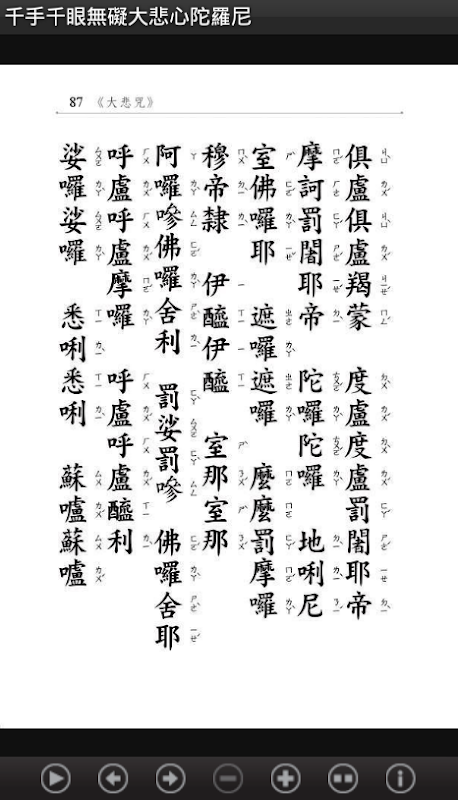 千手千眼無礙大悲心陀羅尼
87 《大悲咒》
俱盧俱盧羯蒙 度盧度盧罰闍耶帝
摩訶罰闍耶帝 陀囉陀囉 地唎尼
室佛囉耶 遮囉遮囉 麼麼罰摩囉
穆帝隸 伊醯伊醯 室那室那
阿囉嘇佛囉舍利 罰娑罰嘇 佛囉舍耶
呼盧呼盧摩囉 呼盧呼盧醯利
娑囉娑囉 悉唎悉唎 蘇嚧蘇嚧